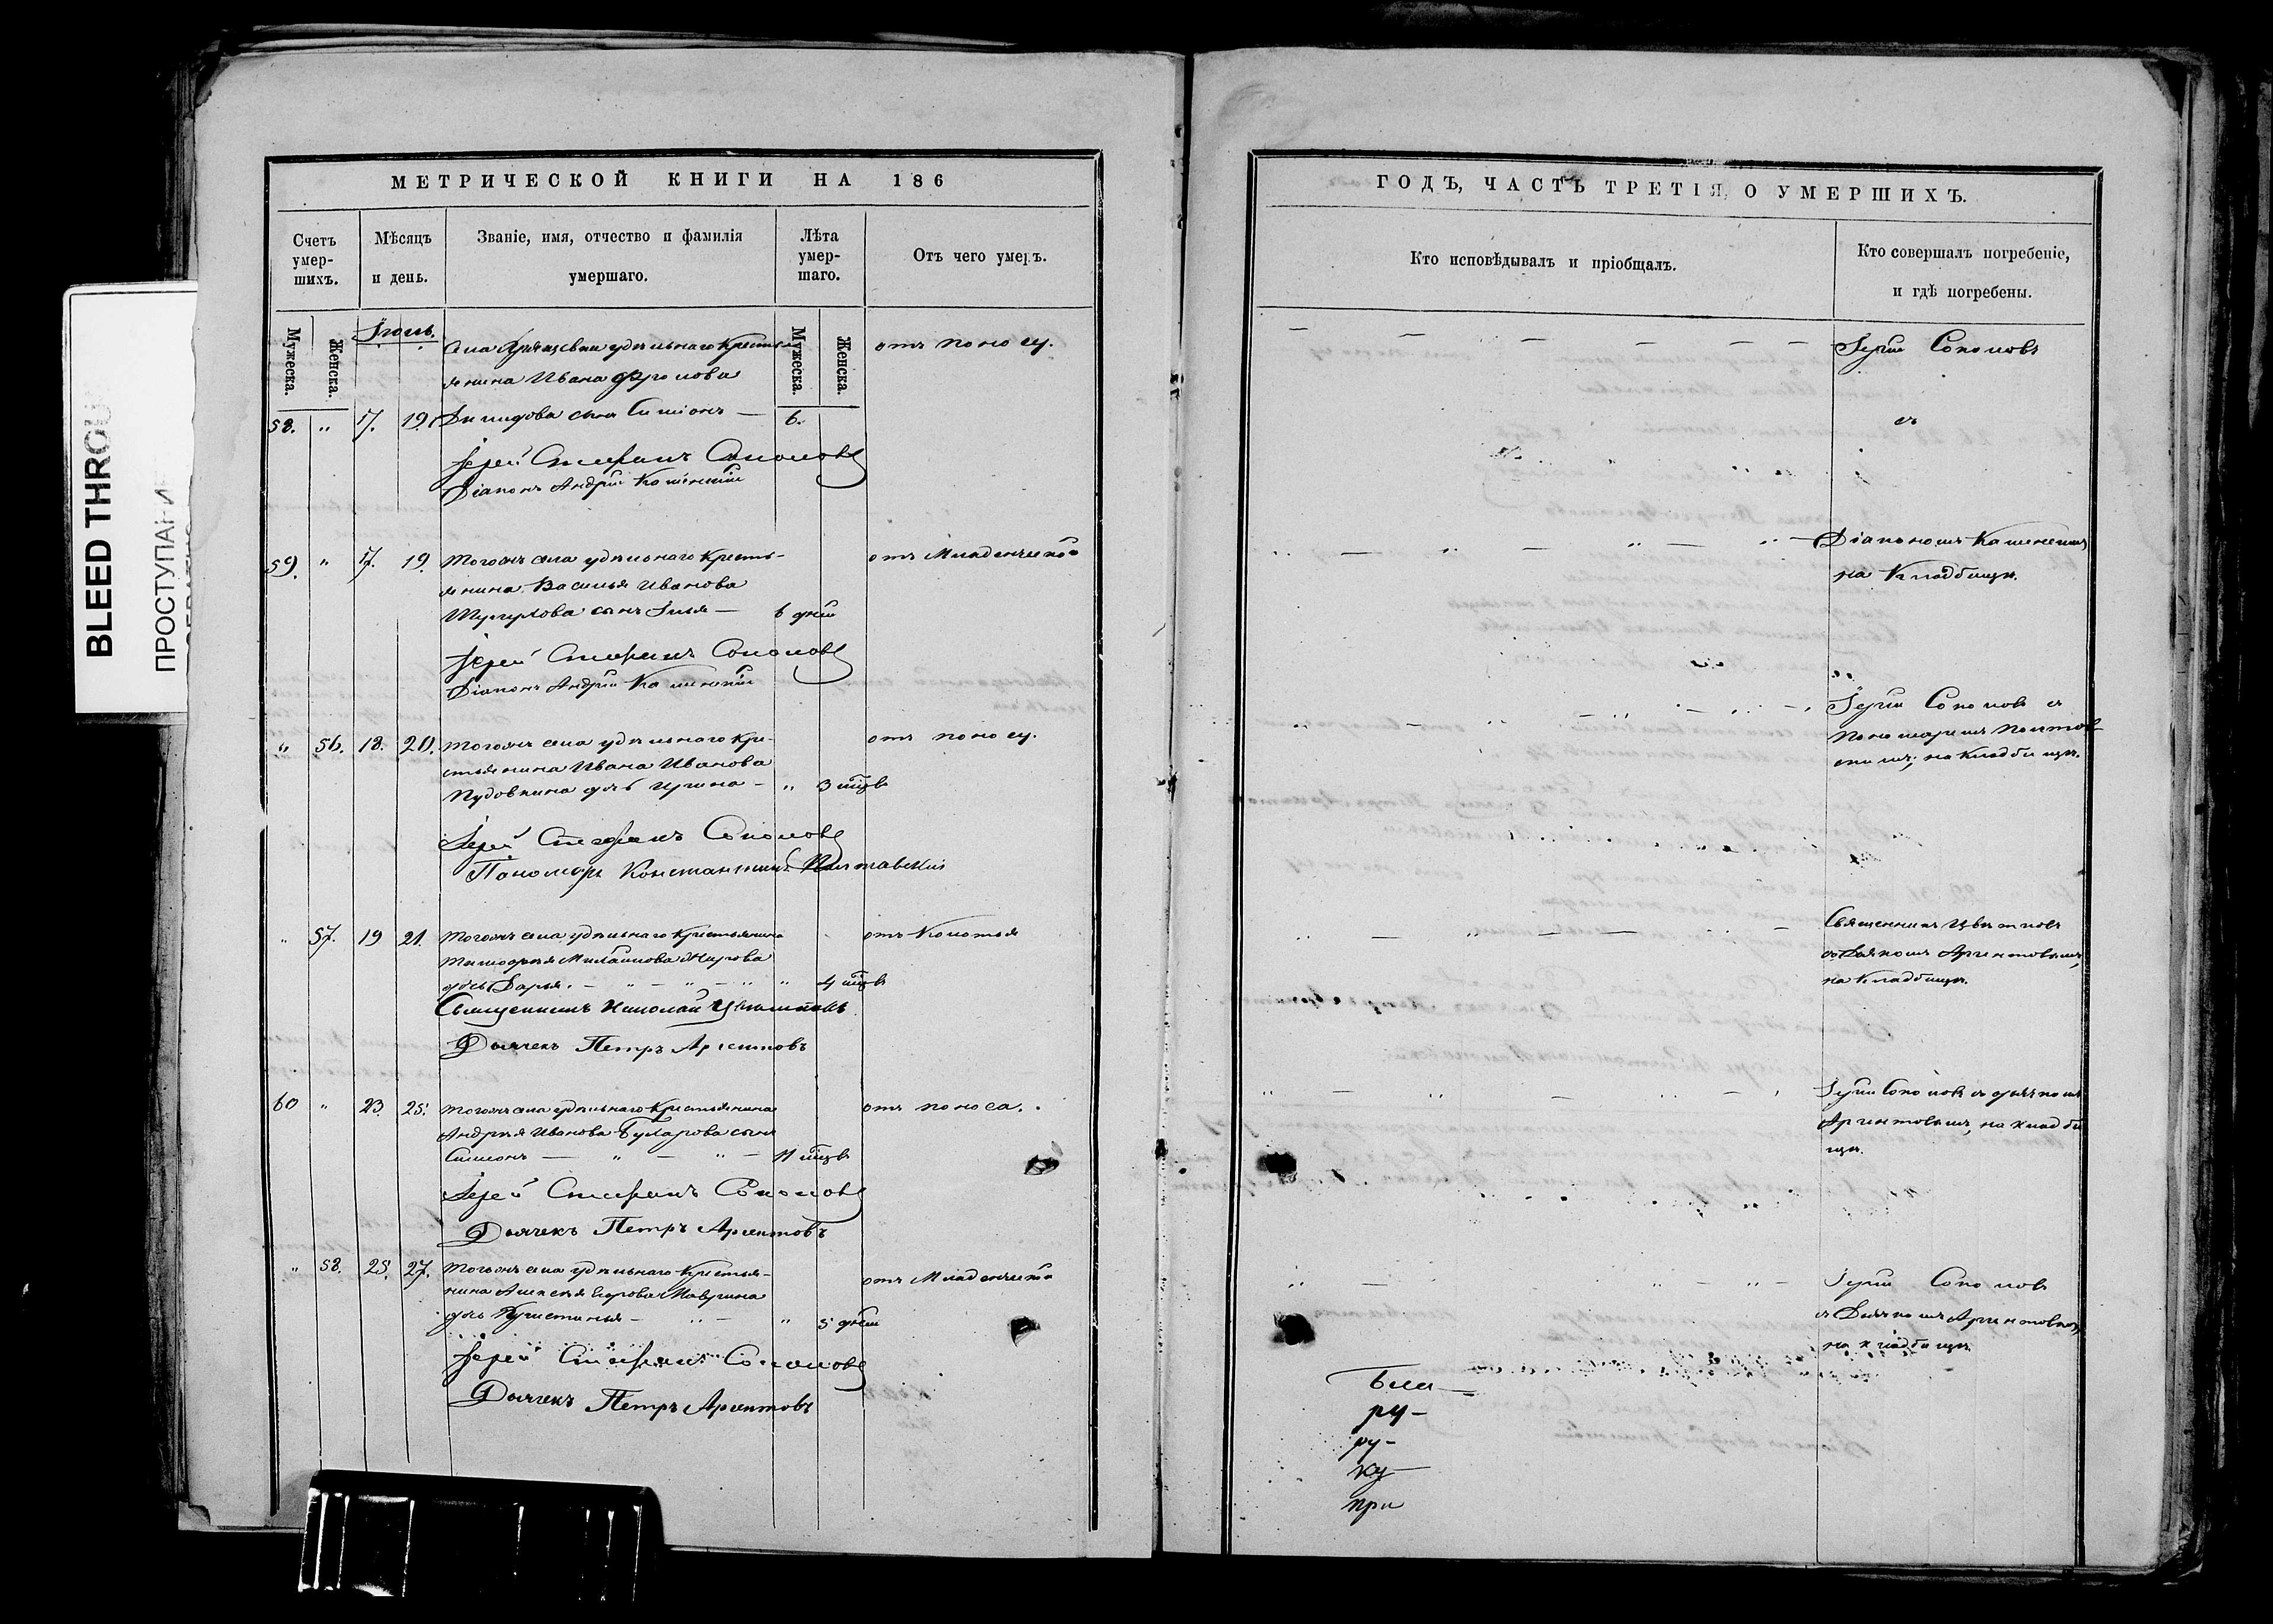 МЕТРИЧЕСКОЙ КНИГИ НА 186
Счетъ умер-шихъ.
Мѣсяцъ и день.
Званіе, имя, отчество и фамилія умершаго.
Лѣта умер-шаго.
Отъ чего умеръ.
Мужеска.
Женска.
Мужеска.
Женска.
села удѣльнаго кресть-
янина Ивана Фролова
сынъ Симіонъ —
отъ поносу.
58. " 17. 19. 6.
Іерей Стефанъ Соколовъ
Діаконъ Андрей Каменскій
59. " 17. 19. тогожъ села удѣльнаго кресть-
янина Василья Иванова
сынъ Илья — 6 дней
отъ младенческой
Іерей Стефанъ Соколовъ
Діаконъ Андрей Каменскій
" 56. 18. 20. тогожъ села удѣльнаго кре-
стьянина Ивана Иванова
Пудовкина дочь Ирина — " 3 мѣсцв
отъ поносу.
Іерей Стефанъ Соколовъ
Пономарь Константинъ Полтавскій
" 57. 19 21. тогожъ села удѣльнаго крестьянина
Тимофея Михайлова
дочь Дарья. — " — " — " " 4 мѣсцв
отъ колотья
Священникъ Николай Цвѣтковъ
Дьячекъ Петръ Аргентовъ
60 " 23. 25. тогожъ села удѣльнаго крестьянина
Андрея Иванова сынъ
Симеонъ — " — " — 11 мѣсцв
отъ поноса.
Іерей Стефанъ Соколовъ
Дьячекъ Петръ Аргентовъ
" 58. 25. 27. тогожъ села удѣльнаго крестья-
нина Алексея Егорова Маврина
дочь Кристинья — " — " 5 дней
отъ младенческой
Іерей Стефанъ Соколовъ
Дьячекъ Петръ Аргентовъ
ГОДЪ, ЧАСТЬ ТРЕТІЯ, О УМЕРШИХЪ.
Кто исповѣдывалъ и пріобщалъ.
Кто совершалъ погребеніе, и гдѣ погребены.
Іерей Соколовъ
съ
Діакономъ Каменскимъ
на кладбищѣ.
Іерей Соколовъ съ
пономаремъ Полтав-
скимъ, на кладбищѣ.
Священникъ Цвѣтковъ
съ дьячкомъ Аргентовымъ,
на кладбищѣ.
Іерей Соколовъ съ дьячкомъ
Аргентовымъ, на кладби
щѣ.
Іерей Соколовъ
съ дьячкомъ Аргентовымъ,
на кладбищѣ.
ру-
ру-
ку-
при
BLEED THROU